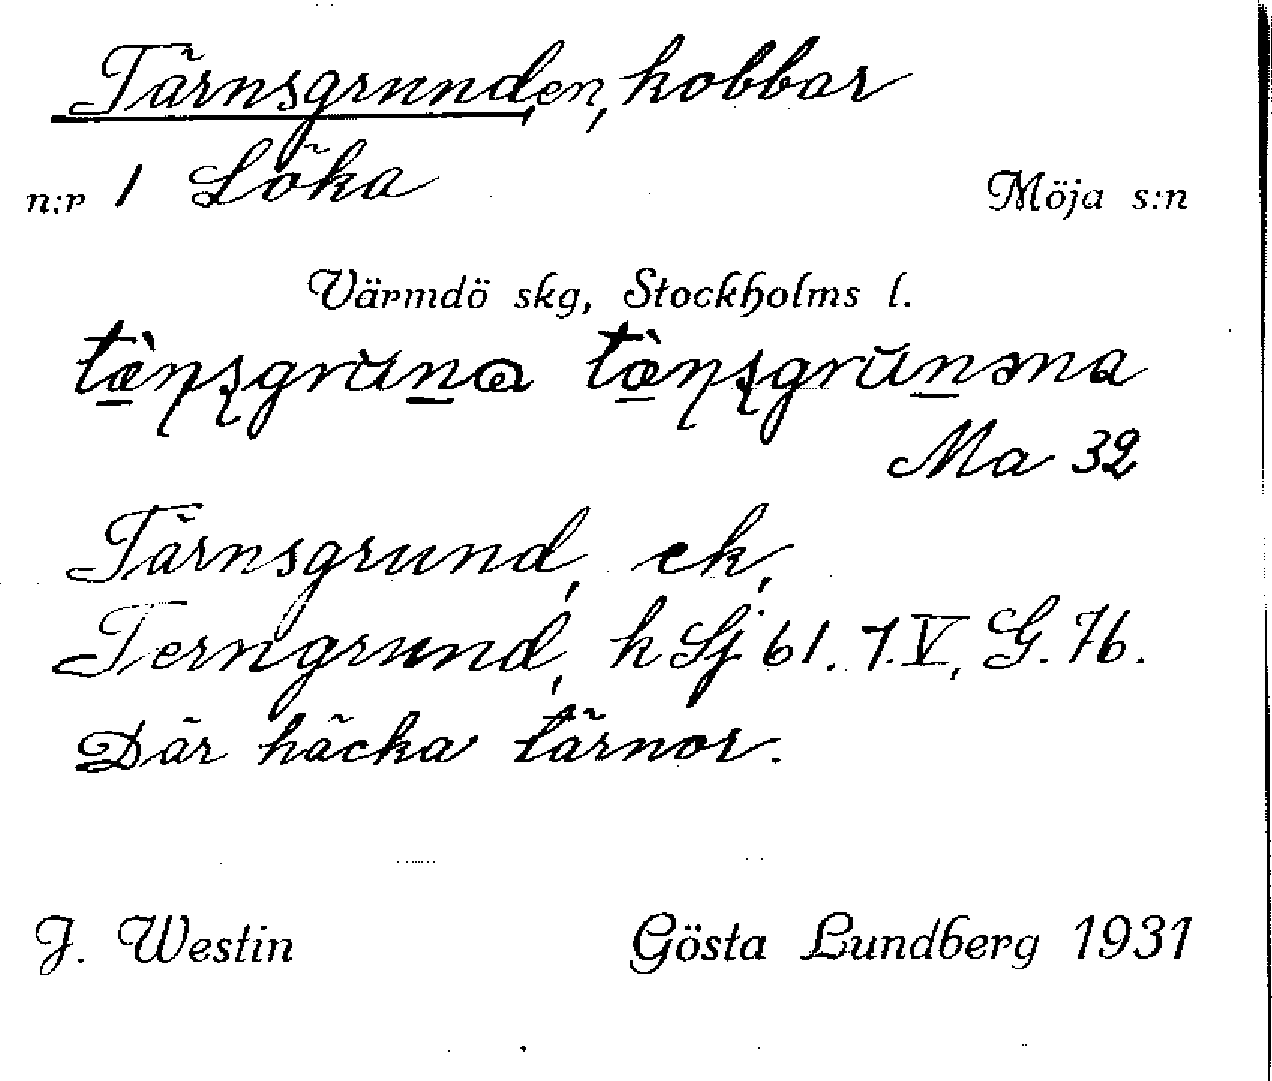 Tärnsgrunden, kobbar
n:r 1 Löka Möja s:n
Värmdö skg, Stockholms l.
Ma 32
Tärnsgrund, ek,
Terngrund, h Sj 61. 7.V, G. 76.
Där häcka tärnor.
J. Westin Gösta Lundberg 1931